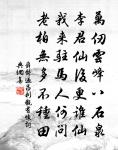 萬仞雲峰八石泉
李君仙後更誰仙
我來駐馬人何問
老柏無多不種田